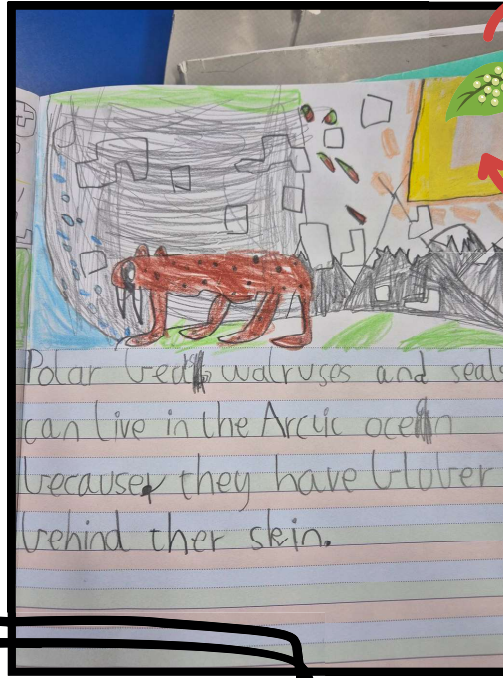 Polar bears walruses and seals
can live in the Arctic ocean
because they have bluber
behind ther skin.